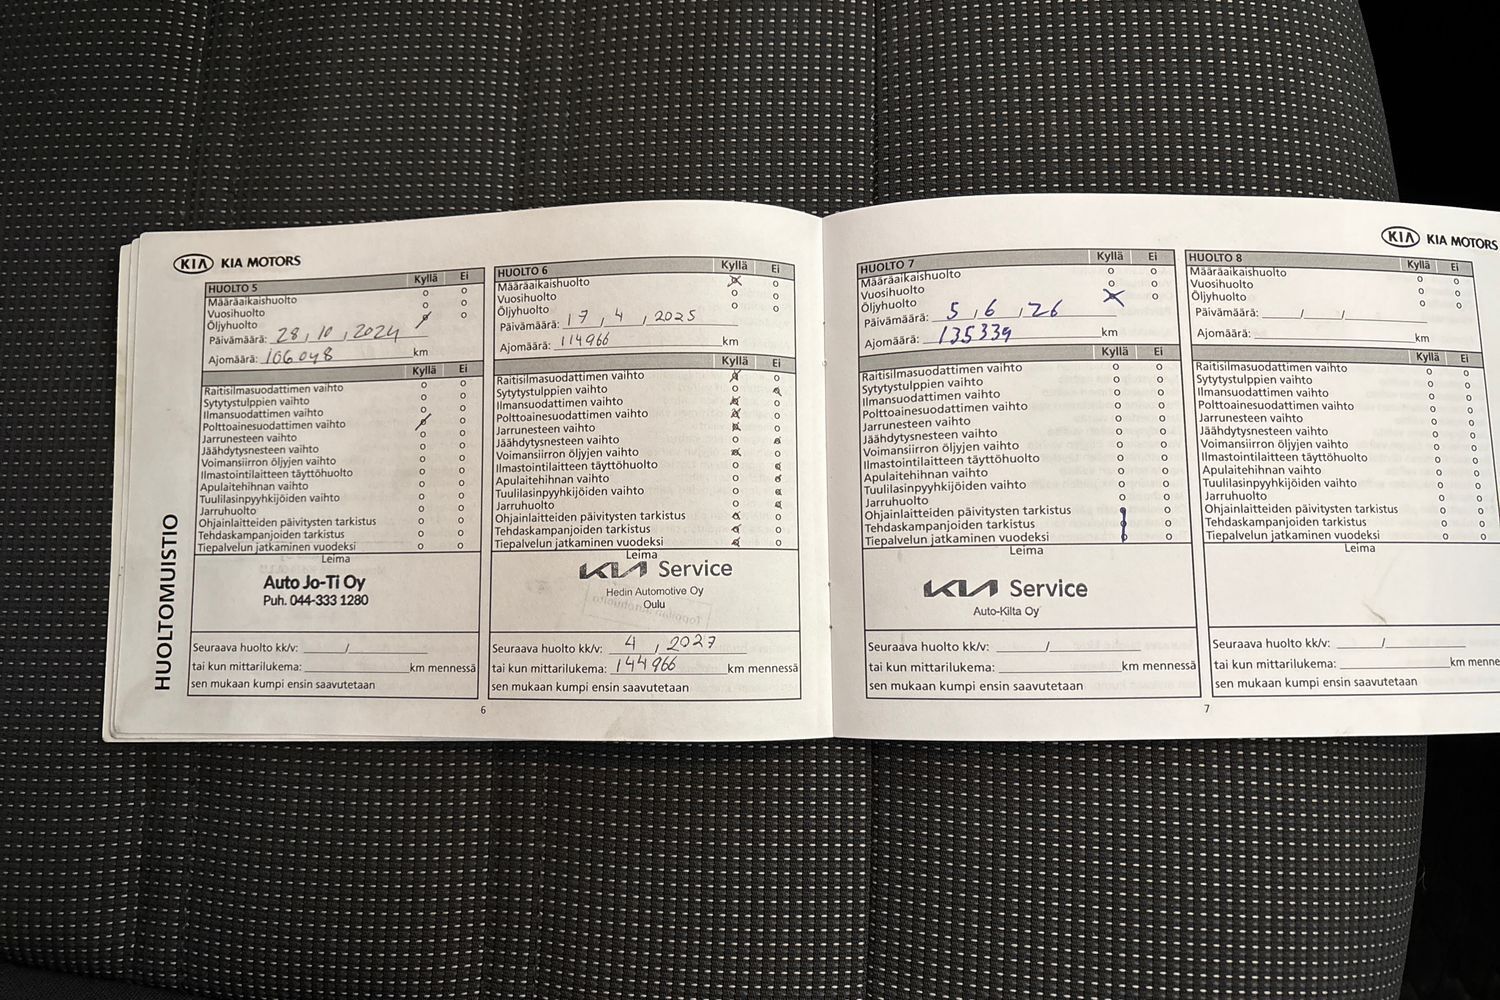 KIA KIA MOTORS
HUOLTOMUISTIO
HUOLTO 5 Kyllä Ei
Määräaikaishuolto o o
Vuosihuolto o o
Öljyhuolto o o
Päivämäärä: 28, 10, 2024
Ajomäärä: 106048 km
Kyllä Ei
Raitisilmasuodattimen vaihto o o
Sytytystulppien vaihto o o
Ilmansuodattimen vaihto o o
Polttoainesuodattimen vaihto o o
Jarrunesteen vaihto o o
Jäähdytysnesteen vaihto o o
Voimansiirron öljyjen vaihto o o
Ilmastointilaitteen täyttöhuolto o o
Apulaitehihnan vaihto o o
Tuulilasinpyyhkijöiden vaihto o o
Jarruhuolto o o
Ohjainlaitteiden päivitysten tarkistus o o
Tehdaskampanjoiden tarkistus o o
Tiepalvelun jatkaminen vuodeksi o o
Leima
Auto Jo-Ti Oy
Puh. 044-333 1280
Seuraava huolto kk/v: /
tai kun mittarilukema: km mennessä
sen mukaan kumpi ensin saavutetaan
HUOLTO 6 Kyllä Ei
Määräaikaishuolto o o
Vuosihuolto o o
Öljyhuolto o o
Päivämäärä: 17, 4, 2025
Ajomäärä: 114966 km
Kyllä Ei
Raitisilmasuodattimen vaihto o o
Sytytystulppien vaihto o o
Ilmansuodattimen vaihto o o
Polttoainesuodattimen vaihto o o
Jarrunesteen vaihto o o
Jäähdytysnesteen vaihto o o
Voimansiirron öljyjen vaihto o o
Ilmastointilaitteen täyttöhuolto o o
Apulaitehihnan vaihto o o
Tuulilasinpyyhkijöiden vaihto o o
Jarruhuolto o o
Ohjainlaitteiden päivitysten tarkistus o o
Tehdaskampanjoiden tarkistus o o
Tiepalvelun jatkaminen vuodeksi o o
Leima
KIA Service
Hedin Automotive Oy
Oulu
Seuraava huolto kk/v: 4, 2027
tai kun mittarilukema: 144966 km mennessä
sen mukaan kumpi ensin saavutetaan
6
KIA KIA MOTORS
HUOLTO 7 Kyllä Ei
Määräaikaishuolto o o
Vuosihuolto o o
Öljyhuolto o o
Päivämäärä: 5, 6, 26
Ajomäärä: 135339 km
Kyllä Ei
Raitisilmasuodattimen vaihto o o
Sytytystulppien vaihto o o
Ilmansuodattimen vaihto o o
Polttoainesuodattimen vaihto o o
Jarrunesteen vaihto o o
Jäähdytysnesteen vaihto o o
Voimansiirron öljyjen vaihto o o
Ilmastointilaitteen täyttöhuolto o o
Apulaitehihnan vaihto o o
Tuulilasinpyyhkijöiden vaihto o o
Jarruhuolto o o
Ohjainlaitteiden päivitysten tarkistus o o
Tehdaskampanjoiden tarkistus o o
Tiepalvelun jatkaminen vuodeksi o o
Leima
KIA Service
Auto-Kilta Oy
Seuraava huolto kk/v: /
tai kun mittarilukema: km mennessä
sen mukaan kumpi ensin saavutetaan
HUOLTO 8 Kyllä Ei
Määräaikaishuolto o o
Vuosihuolto o o
Öljyhuolto o o
Päivämäärä: / /
Ajomäärä: km
Kyllä Ei
Raitisilmasuodattimen vaihto o o
Sytytystulppien vaihto o o
Ilmansuodattimen vaihto o o
Polttoainesuodattimen vaihto o o
Jarrunesteen vaihto o o
Jäähdytysnesteen vaihto o o
Voimansiirron öljyjen vaihto o o
Ilmastointilaitteen täyttöhuolto o o
Apulaitehihnan vaihto o o
Tuulilasinpyyhkijöiden vaihto o o
Jarruhuolto o o
Ohjainlaitteiden päivitysten tarkistus o o
Tehdaskampanjoiden tarkistus o o
Tiepalvelun jatkaminen vuodeksi o o
Leima
Seuraava huolto kk/v: /
tai kun mittarilukema: km menne
sen mukaan kumpi ensin saavutetaan
7